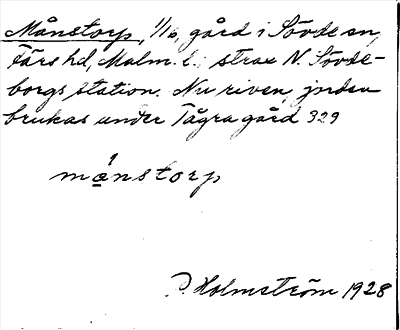 Månstorp, 1/16, gård i Sövde sn,
Färs hd, Malm. l.; strax N. Sövde-
borgs station. Nu riven, jorden
brukas under Tågra gård 329
månstorp
P. Holmström 1928